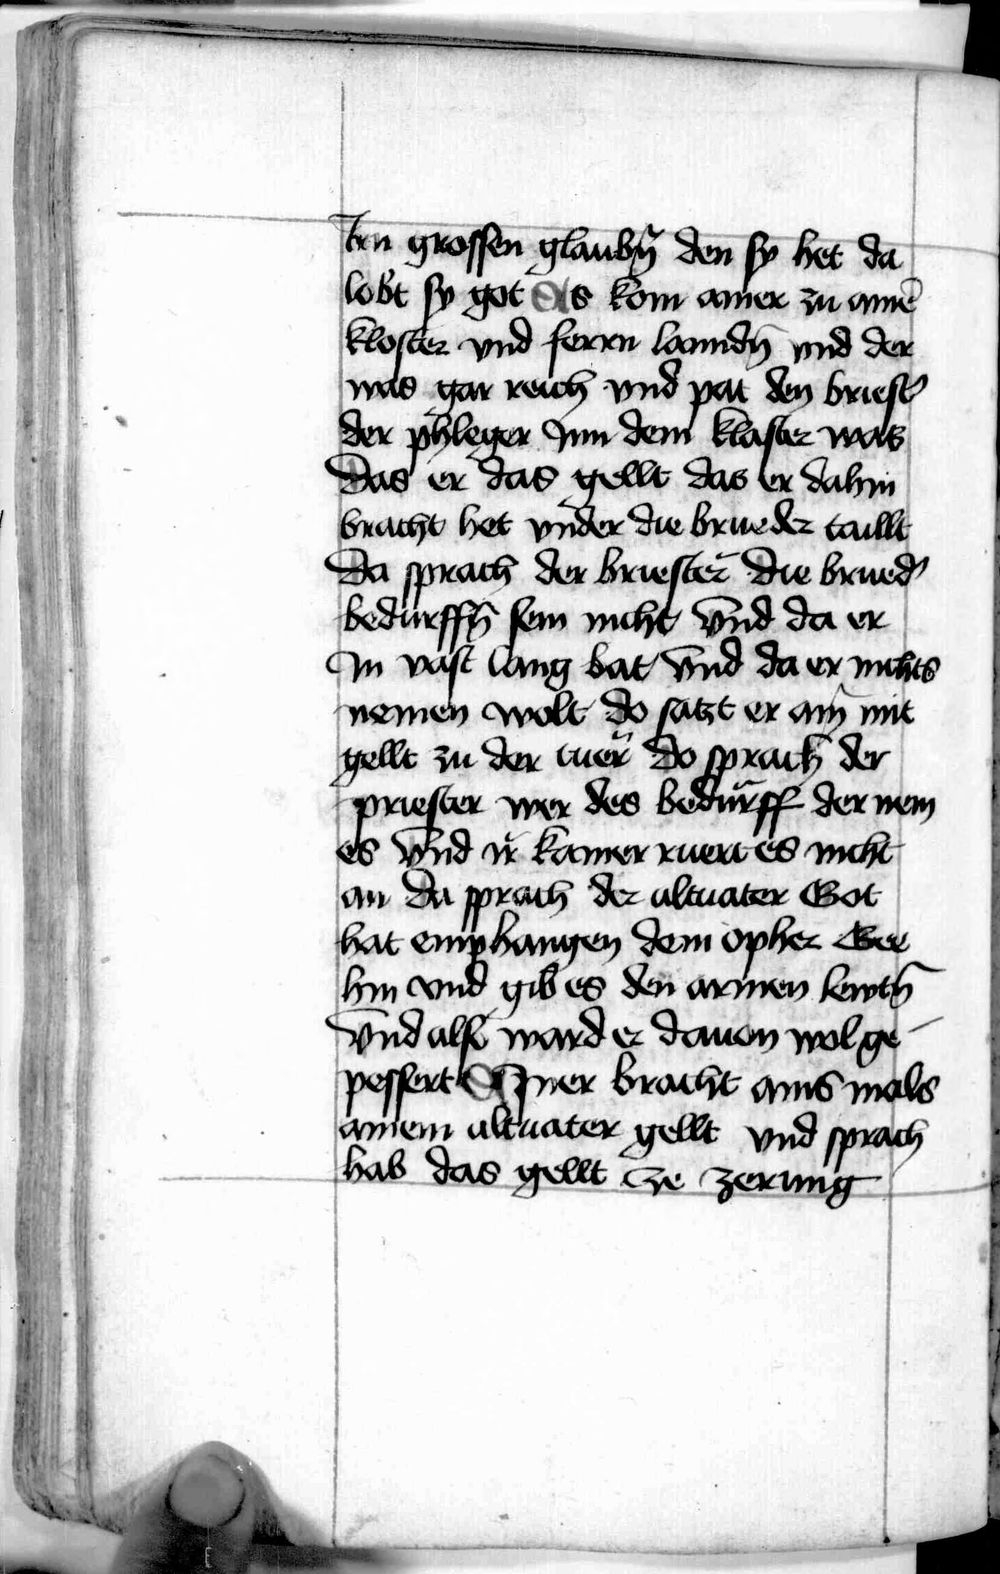 Irn grossen glaubn̄ den sy het da
lobt sy got Es kom ainer zu aine͂
kloster vnd ferrn lanndn̄ vnd der
was gar reich vnd pat den briest͛
der phleger Inn dem kloster was
Das er das gellt das er dahin
bracht het vnder die brueder taillt
Da sprach der briester die brued͛
bedurffn̄ sein nicht Vnd da er
In vast lang bat Vnd da er nichts
nemen wolt do satzt er ain mit
gellt zu der tuer Do sprach der
priester wer des bedurff der nem
es Vnd ir kainer ruert es nicht
an Da sprach der altuater Got
hat emphangen dein opher Gee
hin vnd gib es den armen lewtn̄
Vnd also ward er dauon wol ge-
pessert Ainer bracht ains mals
ainem altuater gellt vnd sprach
hab das gellt ze zerung